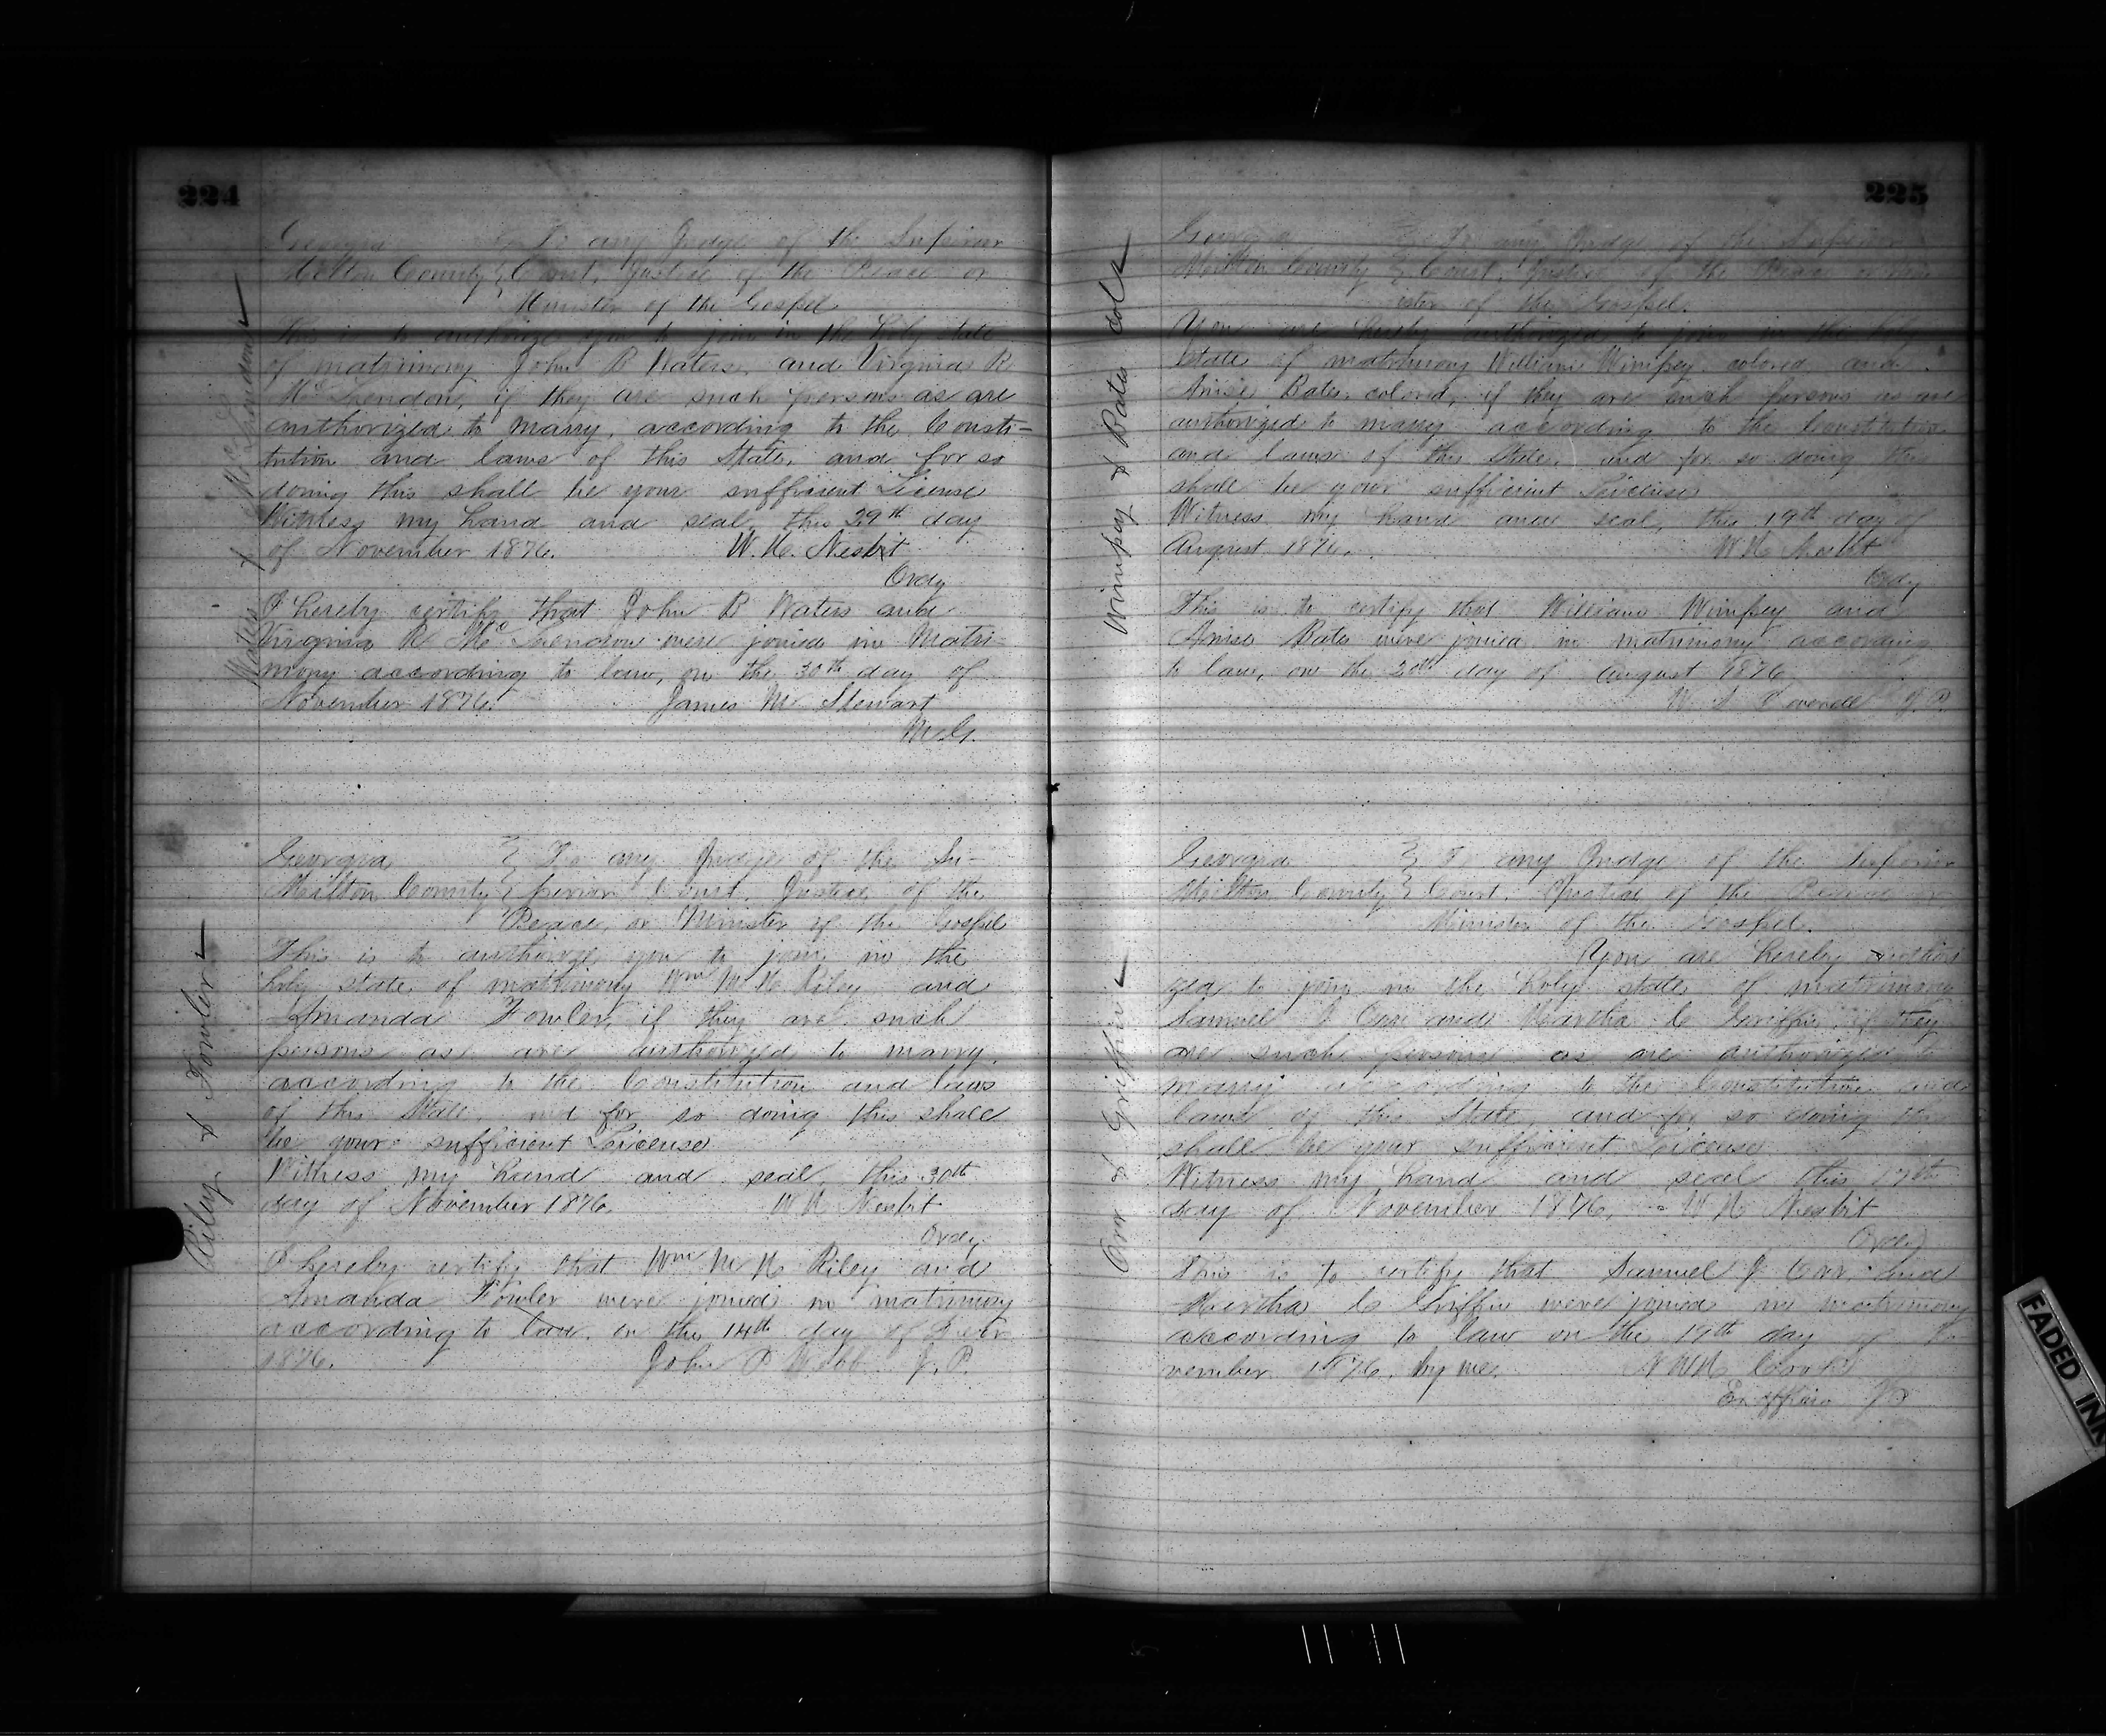 224
Waters & McLendon
Georgia To any Judge of the Superior
Milton County Court, Justice of the Peace or
Minister of the Gospel
This is to authorize you to join in the holy state
of matrimony John B Waters and Virginia R
McLendon, if they are such persons as are
authorized to marry, according to the Consti-
tution and laws of this State, and for so
doing this shall be your sufficient License
Witness my hand and seal, this 29th day
of November 1876. W. H. Nesbit
Ordy
I hereby certify that John B Waters and
Virginia R McLendon were joined in Matri-
mony according to law, on the 30th day of
November 1876. James M. Stewart
M.G.
Riley & Fowler
Georgia To any Judge of the Su-
Milton County perior Court, Justice of the
Peace, or Minister of the Gospel
This is to authorize you to join in the
holy state of matrimony Wm M H Riley and
Amanda Fowler, if they are such
persons as are authorized to marry,
according to the Constitution and laws
of this State, and for so doing this shall
be your sufficient License
Witness my hand and seal, this 30th
day of November 1876. W H Nesbit
Ordy
I hereby certify that Wm M H Riley and
Amanda Fowler were joined in matrimony
according to law, on the 14th day of
1876. John P Webb J. P.
225
Wimpey & Bates col
Georgia To any Judge of the Superior
Milton County Court, Justice of the Peace or Min
ister of the Gospel.
You are hereby authorized to join in the holy
State of matrimony William Wimpey colored and
Anise Bates colored, if they are such persons as are
authorized to marry according to the Constitution
and laws of this State, and for so doing this
shall be your sufficient License
Witness my hand and seal, this 19th day of
August 1876. W H Nesbit
Ordy
This is to certify that William Wimpey and
Anise Bates were joined in matrimony according
to law, on the 20th day of August 1876
W. J. P.
Orr & Griffin
Georgia To any Judge of the Superior
Milton County Court, Justice of the Peace or
Minister of the Gospel.
You are hereby authori
zed to join in the holy state of matrimony
Samuel J Orr and Martha C Griffin, if they
are such persons as are authorized to
marry according to the Constitution and
laws of this State, and for so doing this
shall be your sufficient License
Witness my hand and seal this 17th
day of November 1876. W H Nesbit
Ordy
This is to certify that Samuel J Orr and
Martha C Griffin were joined in matrimony
according to law on the 19th day of No
vember 1876, by me. Cook
Ex officio J P
FADED INK